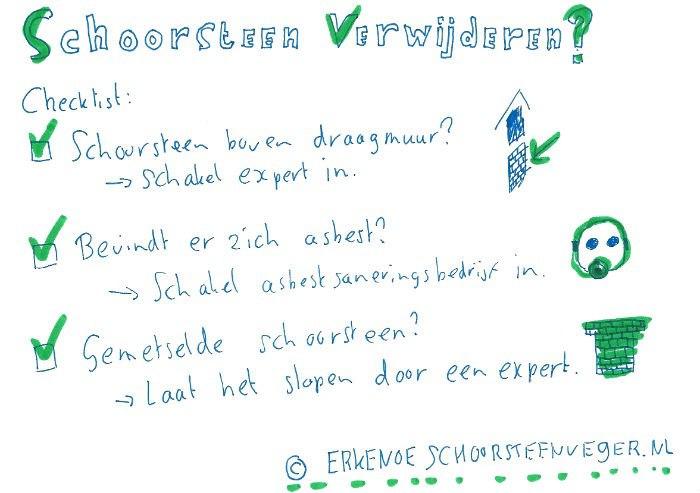 Schoorsteen Verwijderen?
Checklist:
Schoorsteen boven draagmuur?
→ Schakel expert in.
Bevindt er zich asbest?
→ Schakel asbestsaneringsbedrijf in.
Gemetselde schoorsteen?
→ Laat het slopen door een expert.
© ERKENDESCHOORSTEENVEGER.NL